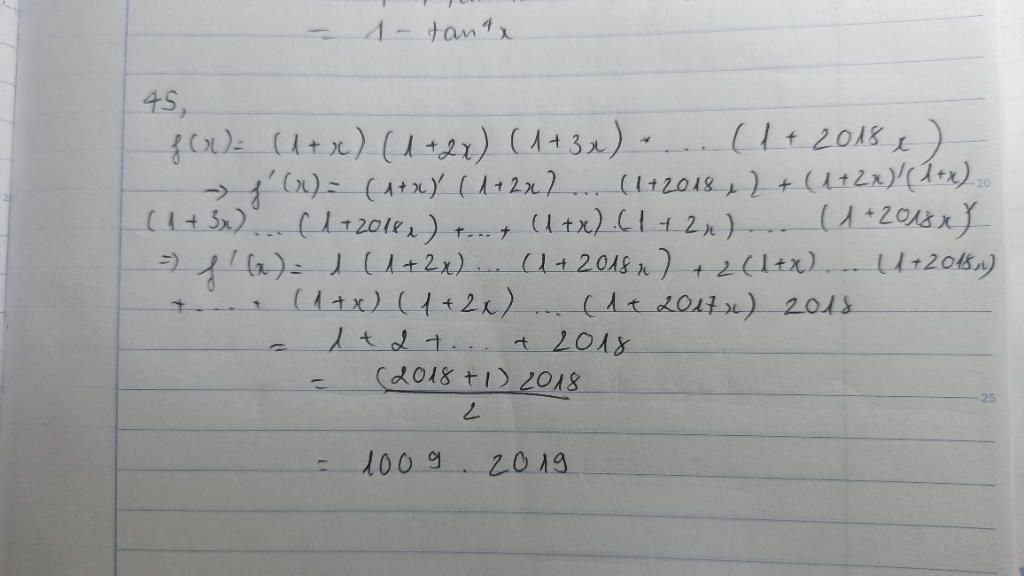 = 1 - tan⁴x
45,
f(x) = (1+x) (1+2x) (1+3x) . ... (1 + 2018x)
→ f'(x) = (1+x)' (1+2x) ... (1+2018x) + (1+2x)'(1+x) 20
(1+3x) ... (1+2018x) + ... + (1+x).(1+2x) ... (1+2018x)'
⇒ f'(x) = 1 (1+2x) ... (1+2018x) + 2(1+x) ... (1+2018x)
+ .... + (1+x) (1+2x) ... (1+2017x) 2018
= 1 + 2 + ... + 2018
= (2018+1) 2018 / 2
25
= 1009 . 2019